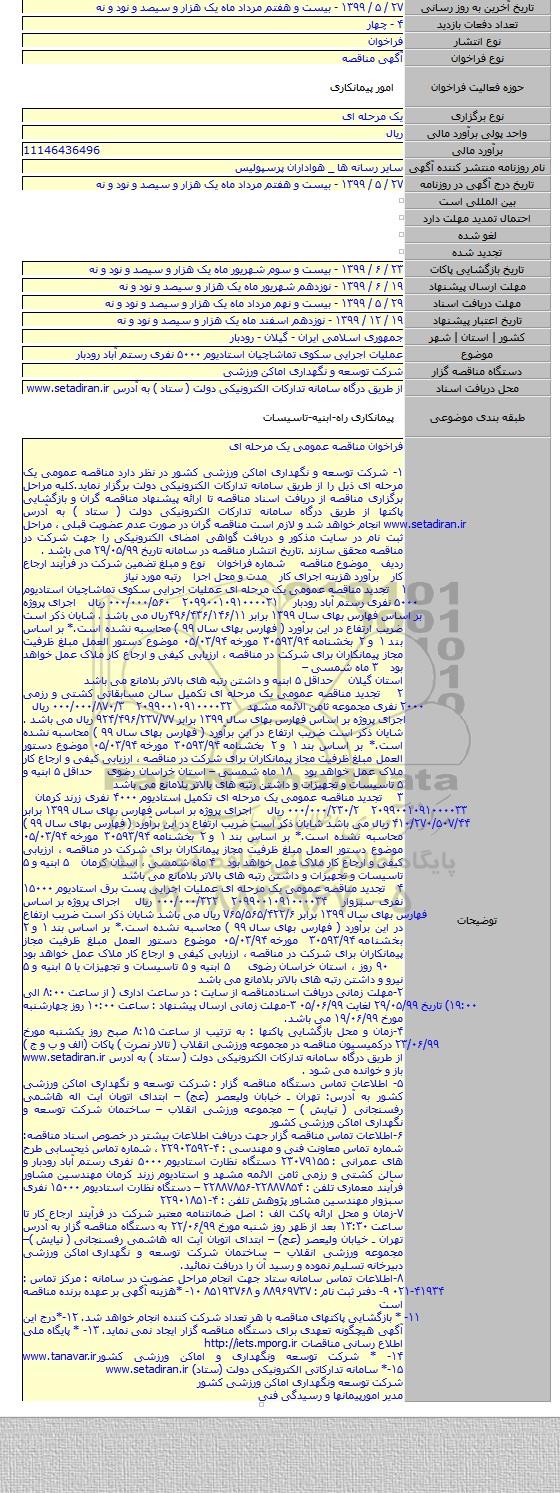 تاریخ آخرین به روز رسانی ۲۷ / ۵ / ۱۳۹۹ - بیست و هفتم مرداد ماه یک هزار و سیصد و نود و نه
تعداد دفعات بازدید ۴ - چهار
نوع انتشار فراخوان
نوع فراخوان آگهی مناقصه
حوزه فعالیت فراخوان امور پیمانکاری
نوع برگزاری یک مرحله ای
واحد پولی برآورد مالی ریال
برآورد مالی 11146436496
نام روزنامه منتشر کننده آگهی سایر رسانه ها _ هواداران پرسپولیس
تاریخ درج آگهی در روزنامه ۲۷ / ۵ / ۱۳۹۹ - بیست و هفتم مرداد ماه یک هزار و سیصد و نود و نه
بین المللی است
احتمال تمدید مهلت دارد
لغو شده
تجدید شده
تاریخ بازگشایی پاکات ۲۳ / ۶ / ۱۳۹۹ - بیست و سوم شهریور ماه یک هزار و سیصد و نود و نه
مهلت ارسال پیشنهاد ۱۹ / ۶ / ۱۳۹۹ - نوزدهم شهریور ماه یک هزار و سیصد و نود و نه
مهلت دریافت اسناد ۲۹ / ۵ / ۱۳۹۹ - بیست و نهم مرداد ماه یک هزار و سیصد و نود و نه
تاریخ اعتبار پیشنهاد ۱۹ / ۱۲ / ۱۳۹۹ - نوزدهم اسفند ماه یک هزار و سیصد و نود و نه
کشور | استان | شهر جمهوری اسلامی ایران - گیلان - رودبار
موضوع عملیات اجرایی سکوی تماشاچیان استادیوم ۵۰۰۰ نفری رستم آباد رودبار
دستگاه مناقصه گزار شرکت توسعه و نگهداری اماکن ورزشی
محل دریافت اسناد از طریق درگاه سامانه تدارکات الکترونیکی دولت ( ستاد ) به آدرس www.setadiran.ir
طبقه بندی موضوعی پیمانکاری راه-ابنیه-تاسیسات
توضیحات
فراخوان مناقصه عمومی یک مرحله ای
۱- شرکت توسعه و نگهداری اماکن ورزشی کشور در نظر دارد مناقصه عمومی یک
مرحله ای ذیل را از طریق سامانه تدارکات الکترونیکی دولت برگزار نماید.کلیه مراحل
برگزاری مناقصه از دریافت اسناد مناقصه تا ارائه پیشنهاد مناقصه گران و بازگشایی
پاکتها از طریق درگاه سامانه تدارکات الکترونیکی دولت ( ستاد ) به آدرس
www.setadiran.ir انجام خواهد شد و لازم است مناقصه گران در صورت عدم عضویت قبلی ، مراحل
ثبت نام در سایت مذکور و دریافت گواهی امضای الکترونیکی را جهت شرکت در
مناقصه محقق سازند .تاریخ انتشار مناقصه در سامانه تاریخ ۲۹/۰۵/۹۹ می باشد .
ردیف موضوع مناقصه شماره فراخوان نوع و مبلغ تضمین شرکت در فرآیند ارجاع
کار برآورد هزینه اجرای کار مدت و محل اجرا رتبه مورد نیاز
۱ تجدید مناقصه عمومی یک مرحله ای عملیات اجرایی سکوی تماشاچیان استادیوم
۵۰۰۰ نفری رستم آباد رودبار ۲۰۹۹۰۰۱۰۹۱۰۰۰۰۳۱ ۵۶۰/۰۰۰/۰۰۰ ریال اجرای پروژه
بر اساس فهارس بهای سال ۱۳۹۹ برابر ۱۱/۱۴۶/۴۳۶/۴۹۶ریال می باشد . شایان ذکر است
ضریب ارتفاع در این برآورد ( فهارس بهای سال ۹۹ ) محاسبه نشده است.* بر اساس
بند ۱ و ۲ بخشنامه ۳۰۵۹۳/۹۴ مورخه ۰۵/۰۳/۹۴ موضوع دستور العمل مبلغ ظرفیت
مجاز پیمانکاران برای شرکت در مناقصه ، ارزیابی کیفی و ارجاع کار ملاک عمل خواهد
بود ۳ ماه شمسی –
استان گیلان حداقل ۵ ابنیه و داشتن رتبه های بالاتر بلامانع می باشد
۲ تجدید مناقصه عمومی یک مرحله ای تکمیل سالن مسابقاتی کشتی و رزمی
۲۰۰۰ نفری مجموعه ثامن الائمه مشهد ۲۰۹۹۰۰۱۰۹۱۰۰۰۰۳۲ ۳/۸۷۰/۰۰۰/۰۰۰ ریال
اجرای پروژه بر اساس فهارس بهای سال ۱۳۹۹ برابر ۷۷/۲۳۷/۴۹۶/۹۲۴ ریال می باشد .
شایان ذکر است ضریب ارتفاع در این برآورد ( فهارس بهای سال ۹۹ ) محاسبه نشده
است.* بر اساس بند ۱ و ۲ بخشنامه ۳۰۵۹۳/۹۴ مورخه ۰۵/۰۳/۹۴ موضوع دستور
العمل مبلغ ظرفیت مجاز پیمانکاران برای شرکت در مناقصه ، ارزیابی کیفی و ارجاع کار
ملاک عمل خواهد بود ۱۸ ماه شمسی – استان خراسان رضوی حداقل ۵ ابنیه و
۵ تاسیسات و تجهیزات و داشتن رتبه های بالاتر بلامانع می باشد
۳ تجدید مناقصه عمومی یک مرحله ای تکمیل استادیوم ۴۰۰۰ نفری زرند کرمان
۲۰۹۹۰۰۱۰۹۱۰۰۰۰۳۳ ۲/۲۳۰/۰۰۰/۰۰۰ ریال اجرای پروژه بر اساس فهارس بهای سال ۱۳۹۹ برابر
۴۴/۵۰۷/۲۷۰/۴۱۰ ریال می باشد شایان ذکر است ضریب ارتفاع در این برآورد( فهارس بهای سال ۹۹ )
محاسبه نشده است.* بر اساس بند ۱ و ۲ بخشنامه ۳۰۵۹۳/۹۴ مورخه ۰۵/۰۳/۹۴
موضوع دستور العمل مبلغ ظرفیت مجاز پیمانکاران برای شرکت در مناقصه ، ارزیابی
کیفی و ارجاع کار ملاک عمل خواهد بود ۴ ماه شمسی ، استان کرمان ۵ ابنیه و ۵
تاسیسات و تجهیزات و داشتن رتبه های بالاتر بلامانع می باشد
۴ تجدید مناقصه عمومی یک مرحله ای عملیات اجرایی پست برق استادیوم ۱۵۰۰۰
نفری سبزوار ۲۰۹۹۰۰۱۰۹۱۰۰۰۰۳۴ ۳۲۲/۰۰۰/۰۰۰ ریال اجرای پروژه بر اساس
فهارس بهای سال ۱۳۹۹ برابر ۶/۴۲۲/۵۶۵/۷۶۵ ریال می باشد شایان ذکر است ضریب ارتفاع
در این برآورد ( فهارس بهای سال ۹۹ ) محاسبه نشده است.* بر اساس بند ۱ و ۲
بخشنامه ۳۰۵۹۳/۹۴ مورخه ۰۵/۰۳/۹۴ موضوع دستور العمل مبلغ ظرفیت مجاز
پیمانکاران برای شرکت در مناقصه ، ارزیابی کیفی و ارجاع کار ملاک عمل خواهد بود
۹۰ روز ، استان خراسان رضوی ۵ ابنیه و ۵ تاسیسات و تجهیزات یا ۵ ابنیه و ۵
نیرو و داشتن رتبه های بالاتر بلامانع می باشد
۲-مهلت زمانی دریافت اسنادمناقصه از سایت : در ساعت اداری ( از ساعت ۸:۰۰ الی
۱۹:۰۰) تاریخ ۲۹/۰۵/۹۹ لغایت ۰۵/۰۶/۹۹ ۳-مهلت زمانی ارسال پیشنهاد : ساعت ۱۰:۰۰ روز چهارشنبه
مورخ ۱۹/۰۶/۹۹ می باشد.
۴-زمان و محل بازگشایی پاکتها : به ترتیب از ساعت ۸:۱۵ صبح روز یکشنبه مورخ
۲۳/۰۶/۹۹ درکمیسیون مناقصه در مجموعه ورزشی انقلاب ( تالار نصرت ) پاکات (الف و ب و ج )
از طریق درگاه سامانه تدارکات الکترونیکی دولت ( ستاد ) به آدرس www.setadiran.ir
باز و خوانده می شود .
۵- اطلاعات تماس دستگاه مناقصه گزار : شرکت توسعه و نگهداری اماکن ورزشی
کشور به آدرس: تهران ـ خیابان ولیعصر (عج) – ابتدای اتوبان آیت اله هاشمی
رفسنجانی ( نیایش ) – مجموعه ورزشی انقلاب – ساختمان شرکت توسعه و
نگهداری اماکن ورزشی کشور
۶-اطلاعات تماس مناقصه گزار جهت دریافت اطلاعات بیشتر در خصوص اسناد مناقصه:
شماره تماس معاونت فنی و مهندسی : ۴-۲۲۹۰۳۵۹۲ ، شماره تماس ذیحسابی طرح
های عمرانی : ۲۳۰۷۹۱۵۵ دستگاه نظارت استادیوم ۵۰۰۰ نفری رستم آباد رودبار و
سالن کشتی و رزمی ثامن الائمه مشهد و استادیوم زرند کرمان مهندسین مشاور
فرآیند معماری تلفن : ۲۲۸۸۷۸۵۴-۲۲۸۸۷۸۵۶ – دستگاه نظارت استادیوم ۱۵۰۰۰ نفری
سبزوار مهندسین مشاور پژوهش تلفن : ۴-۲۲۹۰۱۸۵۱
۷-زمان و محل ارائه پاکت الف : اصل ضمانتنامه معتبر شرکت در فرآیند ارجاع کار تا
ساعت ۱۳:۳۰ بعد از ظهر روز شنبه مورخ ۲۲/۰۶/۹۹ به دستگاه مناقصه گزار به آدرس
تهران ـ خیابان ولیعصر (عج) – ابتدای اتوبان آیت اله هاشمی رفسنجانی ( نیایش )–
مجموعه ورزشی انقلاب – ساختمان شرکت توسعه و نگهداری اماکن ورزشی
دبیرخانه تسلیم نموده و رسید آن را دریافت نمائید.
۸-اطلاعات تماس سامانه ستاد جهت انجام مراحل عضویت در سامانه : مرکز تماس :
۰۲۱-۴۱۹۳۴ ۹- دفتر ثبت نام : ۸۸۹۶۹۷۳۷ و ۸۵۱۹۳۷۶۸ ۱۰- *هزینه آگهی بر عهده برنده مناقصه
است
۱۱- * بازگشایی پاکتهای مناقصه با هر تعداد شرکت کننده انجام خواهد شد. ۱۲-*درج این
آگهی هیچگونه تعهدی برای دستگاه مناقصه گزار ایجاد نمی نماید. ۱۳- * پایگاه ملی
اطلاع رسانی مناقصات http://iets.mporg.ir
۱۴- * شرکت توسعه ونگهداری و اماکن ورزشی کشورwww.tanavar.ir
۱۵-* سامانه تدارکاتی الکترونیکی دولت (ستاد) www.setadiran.ir
شرکت توسعه ونگهداری اماکن ورزشی کشور
مدیر امورپیمانها و رسیدگی فنی